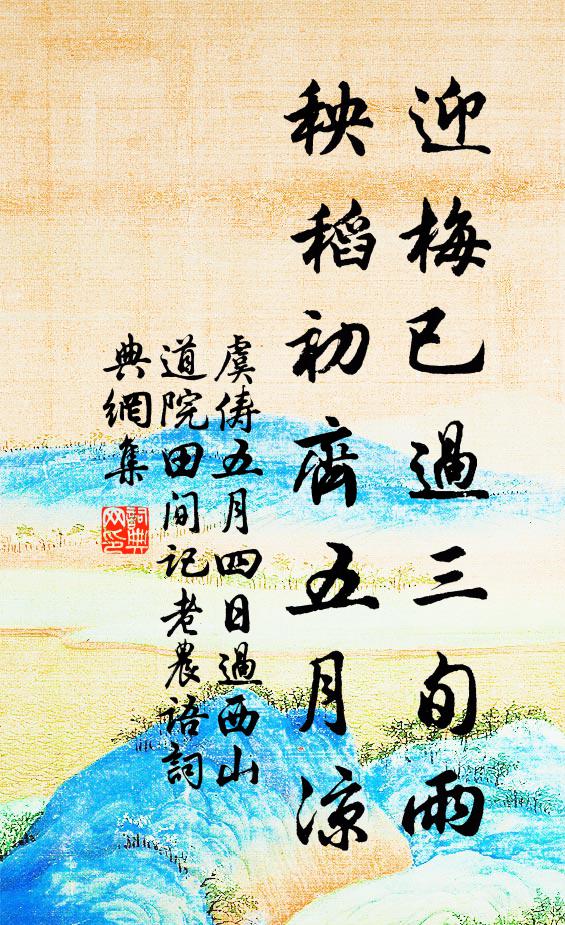 迎梅已過三旬雨
秧稻初齊五月涼
虞儔五月四日過西山
道院田间记老農語詞
典網集
詞典网印